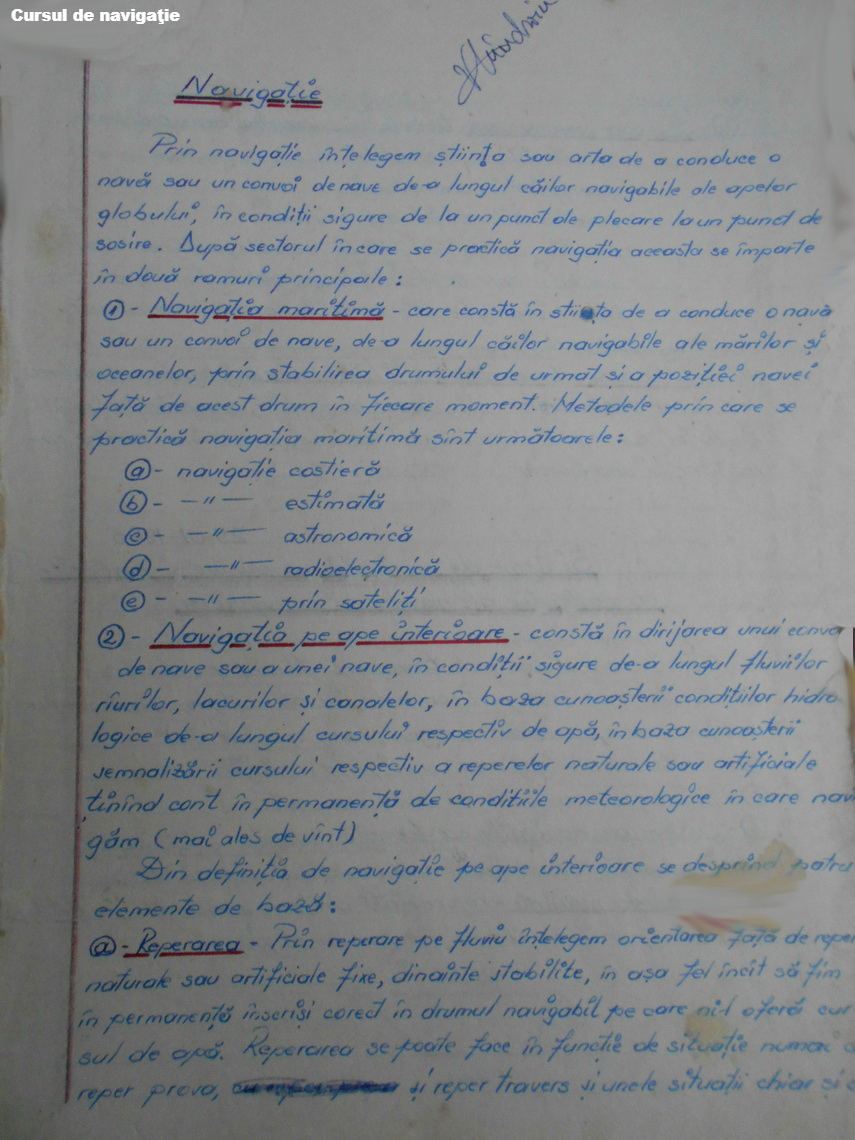 Cursul de navigaţie
Navigaţie
Prin navigaţie înţelegem ştiinţa sau arta de a conduce o
navă sau un convoi de nave de-a lungul căilor navigabile ale apelor
globului, în condiţii sigure de la un punct de plecare la un punct de
sosire. După sectorul în care se practică navigaţia aceasta se împarte
în două ramuri principale :
1 - Navigaţia maritimă - care constă în ştiinţa de a conduce o navă
sau un convoi de nave, de-a lungul căilor navigabile ale mărilor şi
oceanelor, prin stabilirea drumului de urmat şi a poziţiei navei
faţă de acest drum în fiecare moment. Metodele prin care se
practică navigaţia maritimă sînt următoarele :
a - navigaţie costieră
b - —"— estimată
c - —"— astronomică
d - —"— radioelectronică
e - —"— prin sateliţi
2 - Navigaţia pe ape interioare - constă în dirijarea unui convo
de nave sau a unei nave, în condiţii sigure de-a lungul fluviilor
rîurilor, lacurilor şi canalelor, în baza cunoaşterii condiţiilor hidro
logice de-a lungul cursului respectiv de apă, în baza cunoaşterii
semnalizării cursului respectiv a reperelor naturale sau artificiale
ţinînd cont în permanenţă de condiţiile meteorologice în care navi
găm (mai ales de vînt)
Din definiţia de navigaţie pe ape interioare se desprind patru
elemente de bază :
a - Reperarea - Prin reperare pe fluviu înţelegem orientarea faţă de reper
naturale sau artificiale fixe, dinainte stabilite, în aşa fel încît să fim
în permanenţă înscrişi corect în drumul navigabil pe care ni-l oferă cur
sul de apă. Reperarea se poate face în funcţie de situaţie numai
reper prova, şi reper travers şi unele situaţii chiar şi